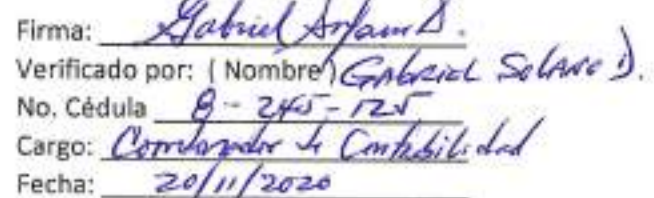 Firma: Gabriel Solano D.
Verificado por: ( Nombre ) GABRIEL SOLANO D.
No. Cédula 8-245-125
Cargo: Coordinador de Contabilidad
Fecha: 20/11/2020